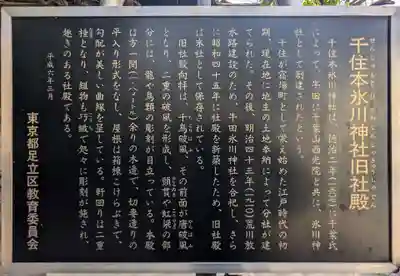 千住本氷川神社旧社殿
千住本氷川神社は、徳治二年(一三〇七)に千葉氏
によって、牛田に千葉山西光院と共に、氷川神
社として創建されたという。
千住が宿場町として栄え始めた江戸時代の初
期、現在地に地主の土地奉納によって分社が建
てられた。その後、明治四十三年(一九一〇)荒川放
水路建設のため、牛田氷川神社を合祀し、さら
に昭和四十五年に社殿を新築したため、旧社殿
は末社として保存されている。
旧社殿向拝は、千鳥破風、その前面が唐破風
となり、二重の破風を形成し、頭貫や虹梁の部
分には、龍や鳥類の彫刻が目立っている。本殿
は方一間(一・八メートル)余りの木造で、切妻造りの
平入り形式をなし、屋根は箱棟こけらぶきで、
勾配が美しい曲線を呈している。軒回りは二重
垂木となり、組物も巧緻で処々に彫刻が施され、
趣きのある社殿である。
平成六年三月
東京都足立区教育委員会